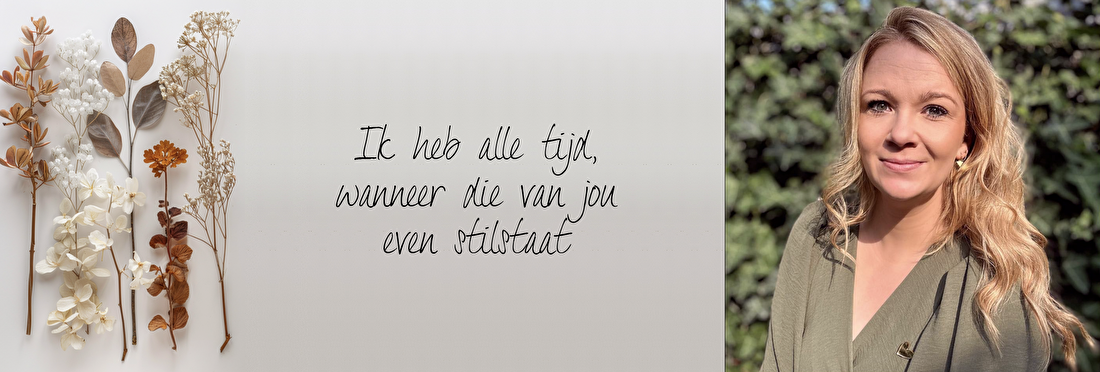 Ik heb alle tijd,
wanneer die van jou
even stilstaat